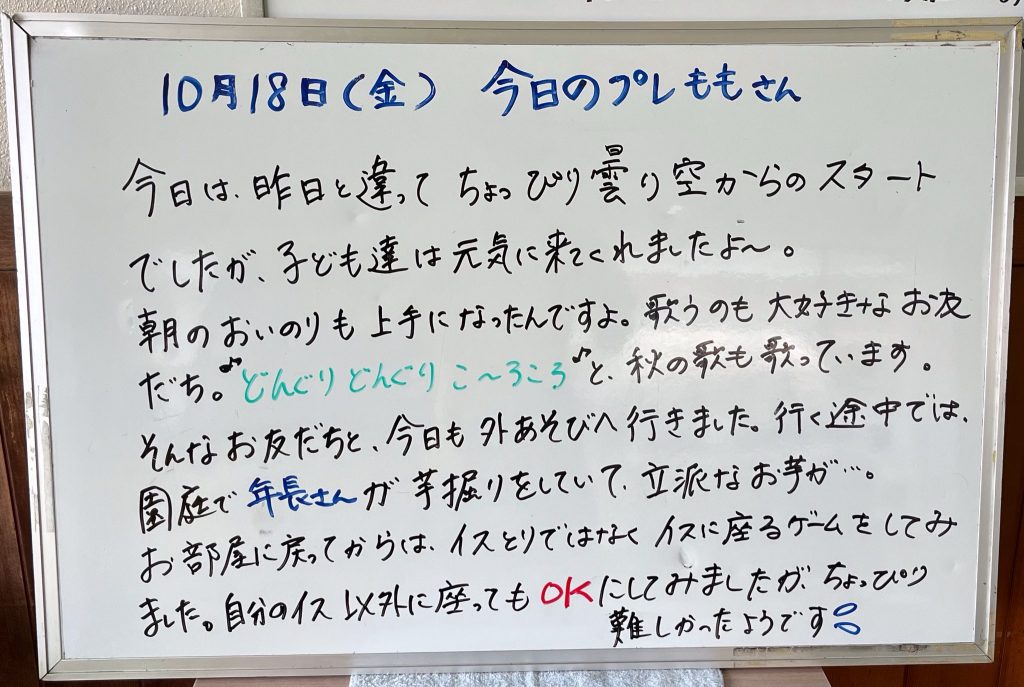 10月18日(金) 今日のプレももさん
今日は、昨日と違って ちょっぴり曇り空からのスタート
でしたが、子ども達は元気に来てくれましたよ〜。
朝のおいのりも上手になったんですよ。歌うのも大好きなお友
だち。♪どんぐりどんぐりこ〜ろころ♪と、秋の歌も歌っています。
そんなお友だちと、今日も外あそびへ行きました。行く途中では、
園庭で年長さんが芋掘りをしていて、立派なお芋が…。
お部屋に戻ってからは、イスとりではなくイスに座るゲームをしてみ
ました。自分のイス以外に座ってもOKにしてみましたが、ちょっぴり
難しかったようです